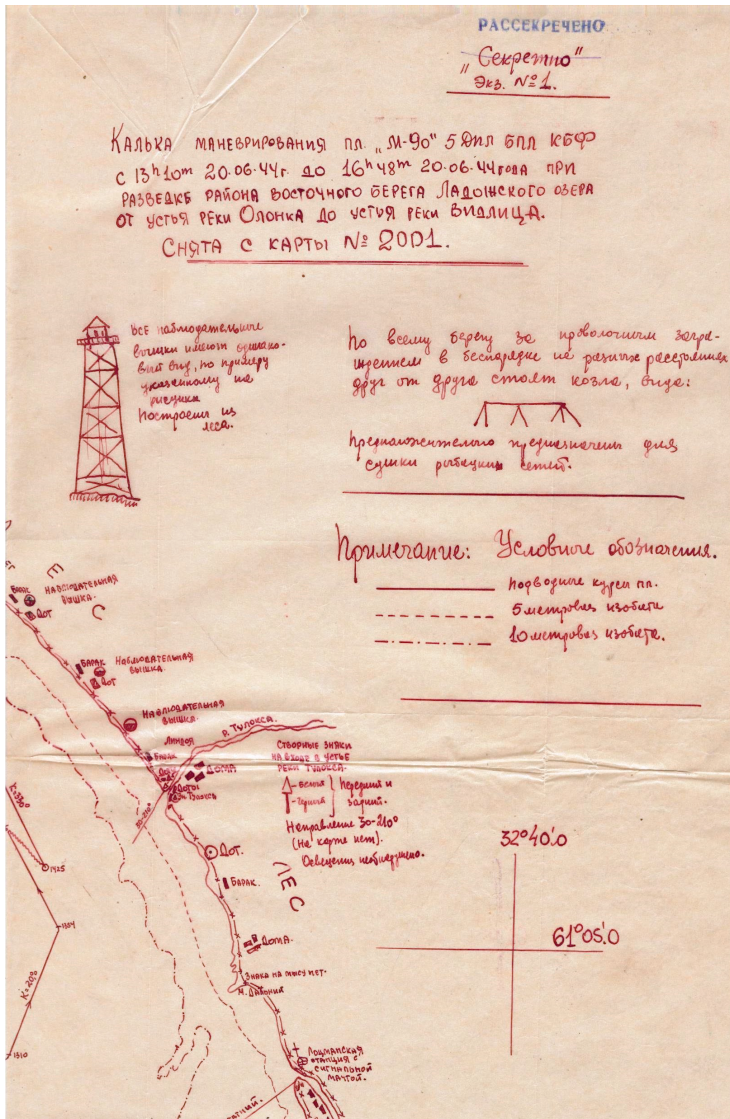 РАССЕКРЕЧЕНО
„Секретно"
Экз. №1.
КАЛЬКА МАНЕВРИРОВАНИЯ ПЛ. „М-90" 5 ДПЛ БПЛ КБФ
С 13ʰ10ᵐ 20.06.44г. ДО 16ʰ48ᵐ 20.06.44года ПРИ
РАЗВЕДКЕ РАЙОНА ВОСТОЧНОГО БЕРЕГА ЛАДОЖСКОГО ОЗЕРА
ОТ УСТЬЯ РЕКИ ОЛОНКА ДО УСТЬЯ РЕКИ ВИДЛИЦА.
СНЯТА С КАРТЫ № 2001.
ВСЕ наблюдательные
вышки имеют одинако-
вый вид, по примеру
указанному на
рисунке
Построены из
леса.
По всему берегу за проволочным загра-
ждением в беспорядке на разных расстояниях
друг от друга стоят козла, вида:
Предположительно предназначены для
сушки рыбацких сетей.
Примечание: Условные обозначения.
подводные курсы пл.
5 метровая изобата
10 метровая изобата.
Е
С
БАРАК
НАБЛЮДАТЕЛЬНАЯ
ВЫШКА.
ДОТ
БАРАК
НАБЛЮДАТЕЛЬНАЯ
ВЫШКА.
ДОТ
НАБЛЮДАТЕЛЬНАЯ
ВЫШКА.
Р. ТУЛОКСА.
ЛИНДОЯ
БАРАК
ДОМА
ДОТЫ
СТВОРНЫЕ ЗНАКИ
НА ВХОДЕ В УСТЬЕ
РЕКИ ТУЛОКСА.
- белый
- черный
Передний и
задний.
Направление 30-210°
(На карте нет).
Освещения необнаружено.
30-210°
К=330°
1425
1304
К=20,0
1310
ДОТ.
БАРАК.
ЛЕС
ДОМА.
ЗНАКА НА МЫСУ НЕТ.
М. ДАЛЬНИЙ
32°40'.0
61°05'.0
ЛОЦМАНСКАЯ
СТАНЦИЯ С
СИГНАЛЬНОЙ
МАЧТОЙ.